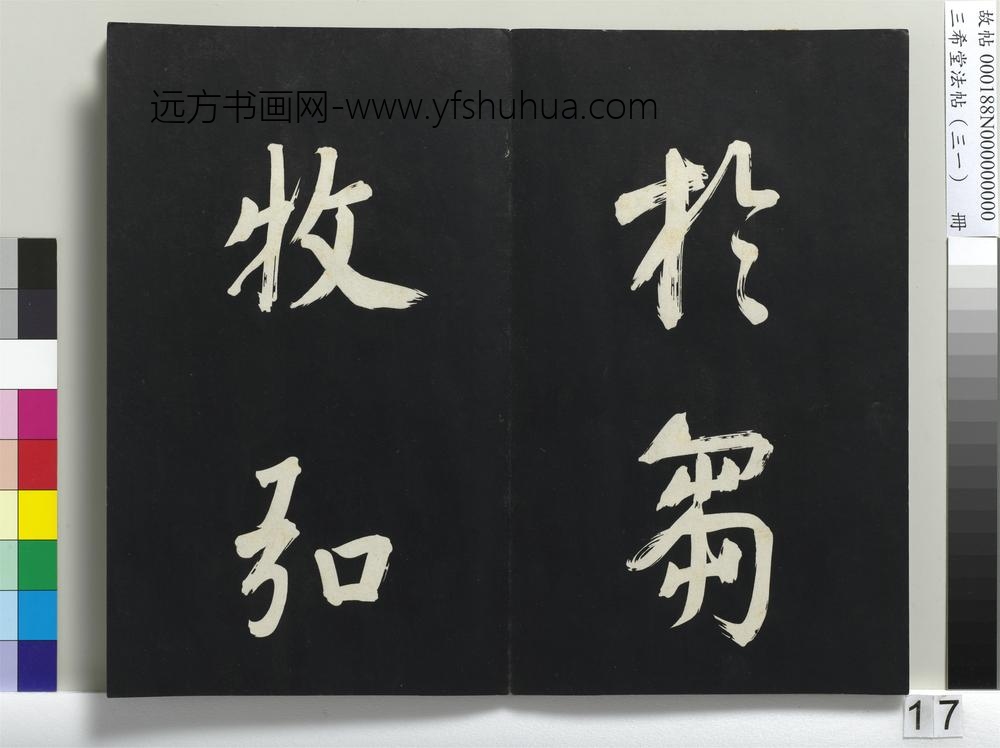 远方书画网-www.yfshuhua.com
於芻
牧弘
故帖 000188N000000000
三希堂法帖（三一） 冊
17